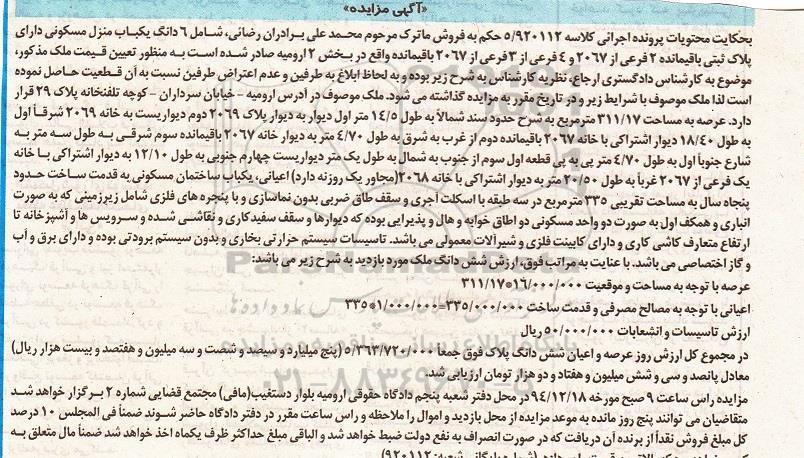 «آگهی مزایده»
بحکایت محتویات پرونده اجرائی کلاسه ۵/۹۲۰۱۱۲ حکم به فروش ماترک مرحوم محمد علی برادران رضائی، شامل ۶ دانگ یکباب منزل مسکونی دارای
پلاک ثبتی باقیمانده ۲ فرعی از ۲۰۶۷ و ۴ فرعی از ۳ فرعی از ۲۰۶۷ باقیمانده واقع در بخش ۲ ارومیه صادر شده است به منظور تعیین قیمت ملک مذکور،
موضوع به کارشناس دادگستری ارجاع، نظریه کارشناس به شرح زیر بوده و به لحاظ ابلاغ به طرفین و عدم اعتراض طرفین نسبت به آن قطعیت حاصل نموده
است لذا ملک موصوف با شرایط زیر و در تاریخ مقرر به مزایده گذاشته می شود. ملک موصوف در آدرس ارومیه - خیابان سرداران - کوچه تلفنخانه پلاک ۲۹ قرار
دارد. عرصه به مساحت ۳۱۱/۱۷ مترمربع به شرح حدود سند شمالاً به طول ۱۴/۵ متر اول دیوار به دیوار پلاک ۲۰۶۹ دوم دیواریست به خانه ۲۰۶۹ شرقاً اول
به طول ۱۸/۴۰ دیوار اشتراکی با خانه ۲۰۶۷ باقیمانده دوم از غرب به شرق به طول ۴/۷۰ متر به دیوار خانه ۲۰۶۷ باقیمانده سوم شرقی به طول سه متر به
شارع جنوباً اول به طول ۴/۷۰ متر پی به پی قطعه اول سوم از جنوب به شمال به طول یک متر دیواریست چهارم جنوبی به طول ۱۲/۱۰ به دیوار اشتراکی با خانه
یک فرعی از ۲۰۶۷ غرباً به طول ۲۰/۵۰ متر به دیوار اشتراکی با خانه ۲۰۶۸(مجاور یک روزنه دارد) اعیانی، یکباب ساختمان مسکونی به قدمت ساخت حدود
پنجاه سال به مساحت تقریبی ۳۳۵ مترمربع در سه طبقه با اسکلت آجری و سقف طاق ضربی بدون نماسازی و با پنجره های فلزی شامل زیرزمینی که به صورت
انباری و همکف اول به صورت دو واحد مسکونی دو اطاق خوابه و هال و پذیرایی بوده که دیوارها و سقف سفیدکاری و نقاشی شده و سرویس ها و آشپزخانه تا
ارتفاع متعارف کاشی کاری و دارای کابینت فلزی و شیرآلات معمولی می باشد. تاسیسات سیستم حرارتی بخاری و بدون سیستم برودتی بوده و دارای برق و آب
و گاز اختصاصی می باشد. با عنایت به مراتب فوق، ارزش شش دانگ ملک مورد بازدید به شرح زیر می باشد:
عرصه با توجه به مساحت و موقعیت ۱۶/۰۰۰/۰۰۰*۳۱۱/۱۷
اعیانی با توجه به مصالح مصرفی و قدمت ساخت ۳۳۵/۰۰۰/۰۰۰=۱/۰۰۰/۰۰۰*۳۳۵
ارزش تاسیسات و انشعابات ۵۰/۰۰۰/۰۰۰ ریال
در مجموع کل ارزش روز عرصه و اعیان شش دانگ پلاک فوق جمعا ۵/۳۶۳/۷۲۰/۰۰۰ (پنج میلیارد و سیصد و شصت و سه میلیون و هفتصد و بیست هزار ریال)
معادل پانصد و سی و شش میلیون و هفتاد و دو هزار تومان ارزیابی شد.
مزایده راس ساعت ۹ صبح مورخه ۹۴/۱۲/۱۸ در محل دفتر شعبه پنجم دادگاه حقوقی ارومیه بلوار دستغیب(مافی) مجتمع قضایی شماره ۲ برگزار خواهد شد
متقاضیان می توانند پنج روز مانده به موعد مزایده از محل بازدید و اموال را ملاحظه و راس ساعت مقرر در دفتر دادگاه حاضر شوند ضمناً فی المجلس ۱۰ درصد
کل مبلغ فروش نقداً از برنده آن دریافت که در صورت انصراف به نفع دولت ضبط خواهد شد و الباقی مبلغ حداکثر ظرف یکماه اخذ خواهد شد ضمناً مال متعلق به